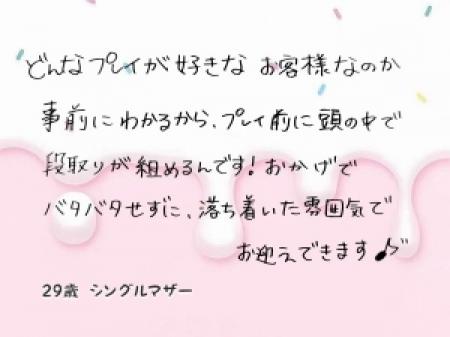 どんなプレイが好きな お客様なのか
事前にわかるから、プレイ前に頭の中で
段取りが組めるんです！おかげで
バタバタせずに、落ち着いた雰囲気で
お迎えできます♪
29歳 シングルマザー